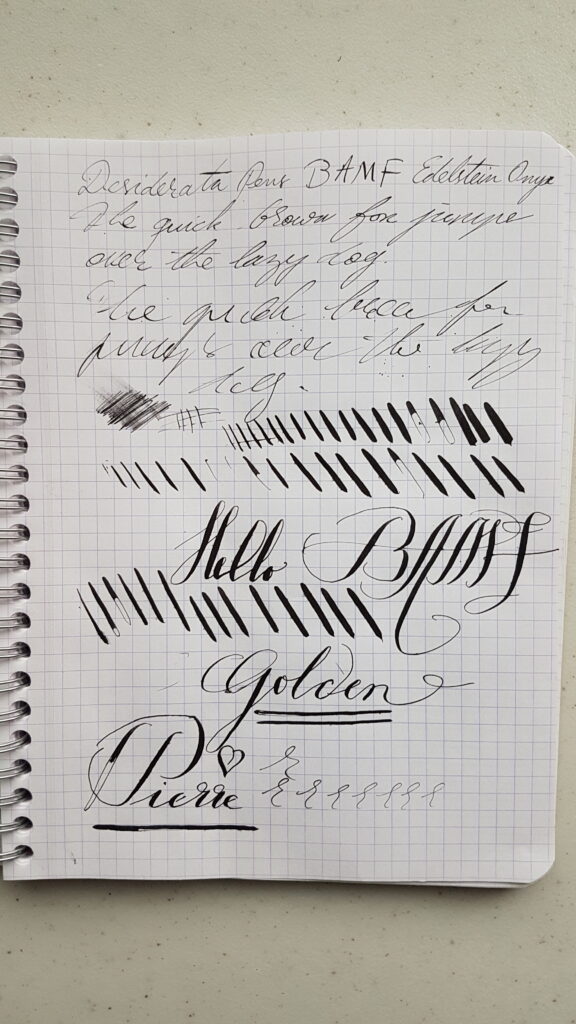 Desiderata Pens BAMF Edelstein Onyx
The quick brown fox jumps
over the lazy dog.
The quick brown fox
jumps over the lazy
dog.
Hello BAMF
Golden
Pierre